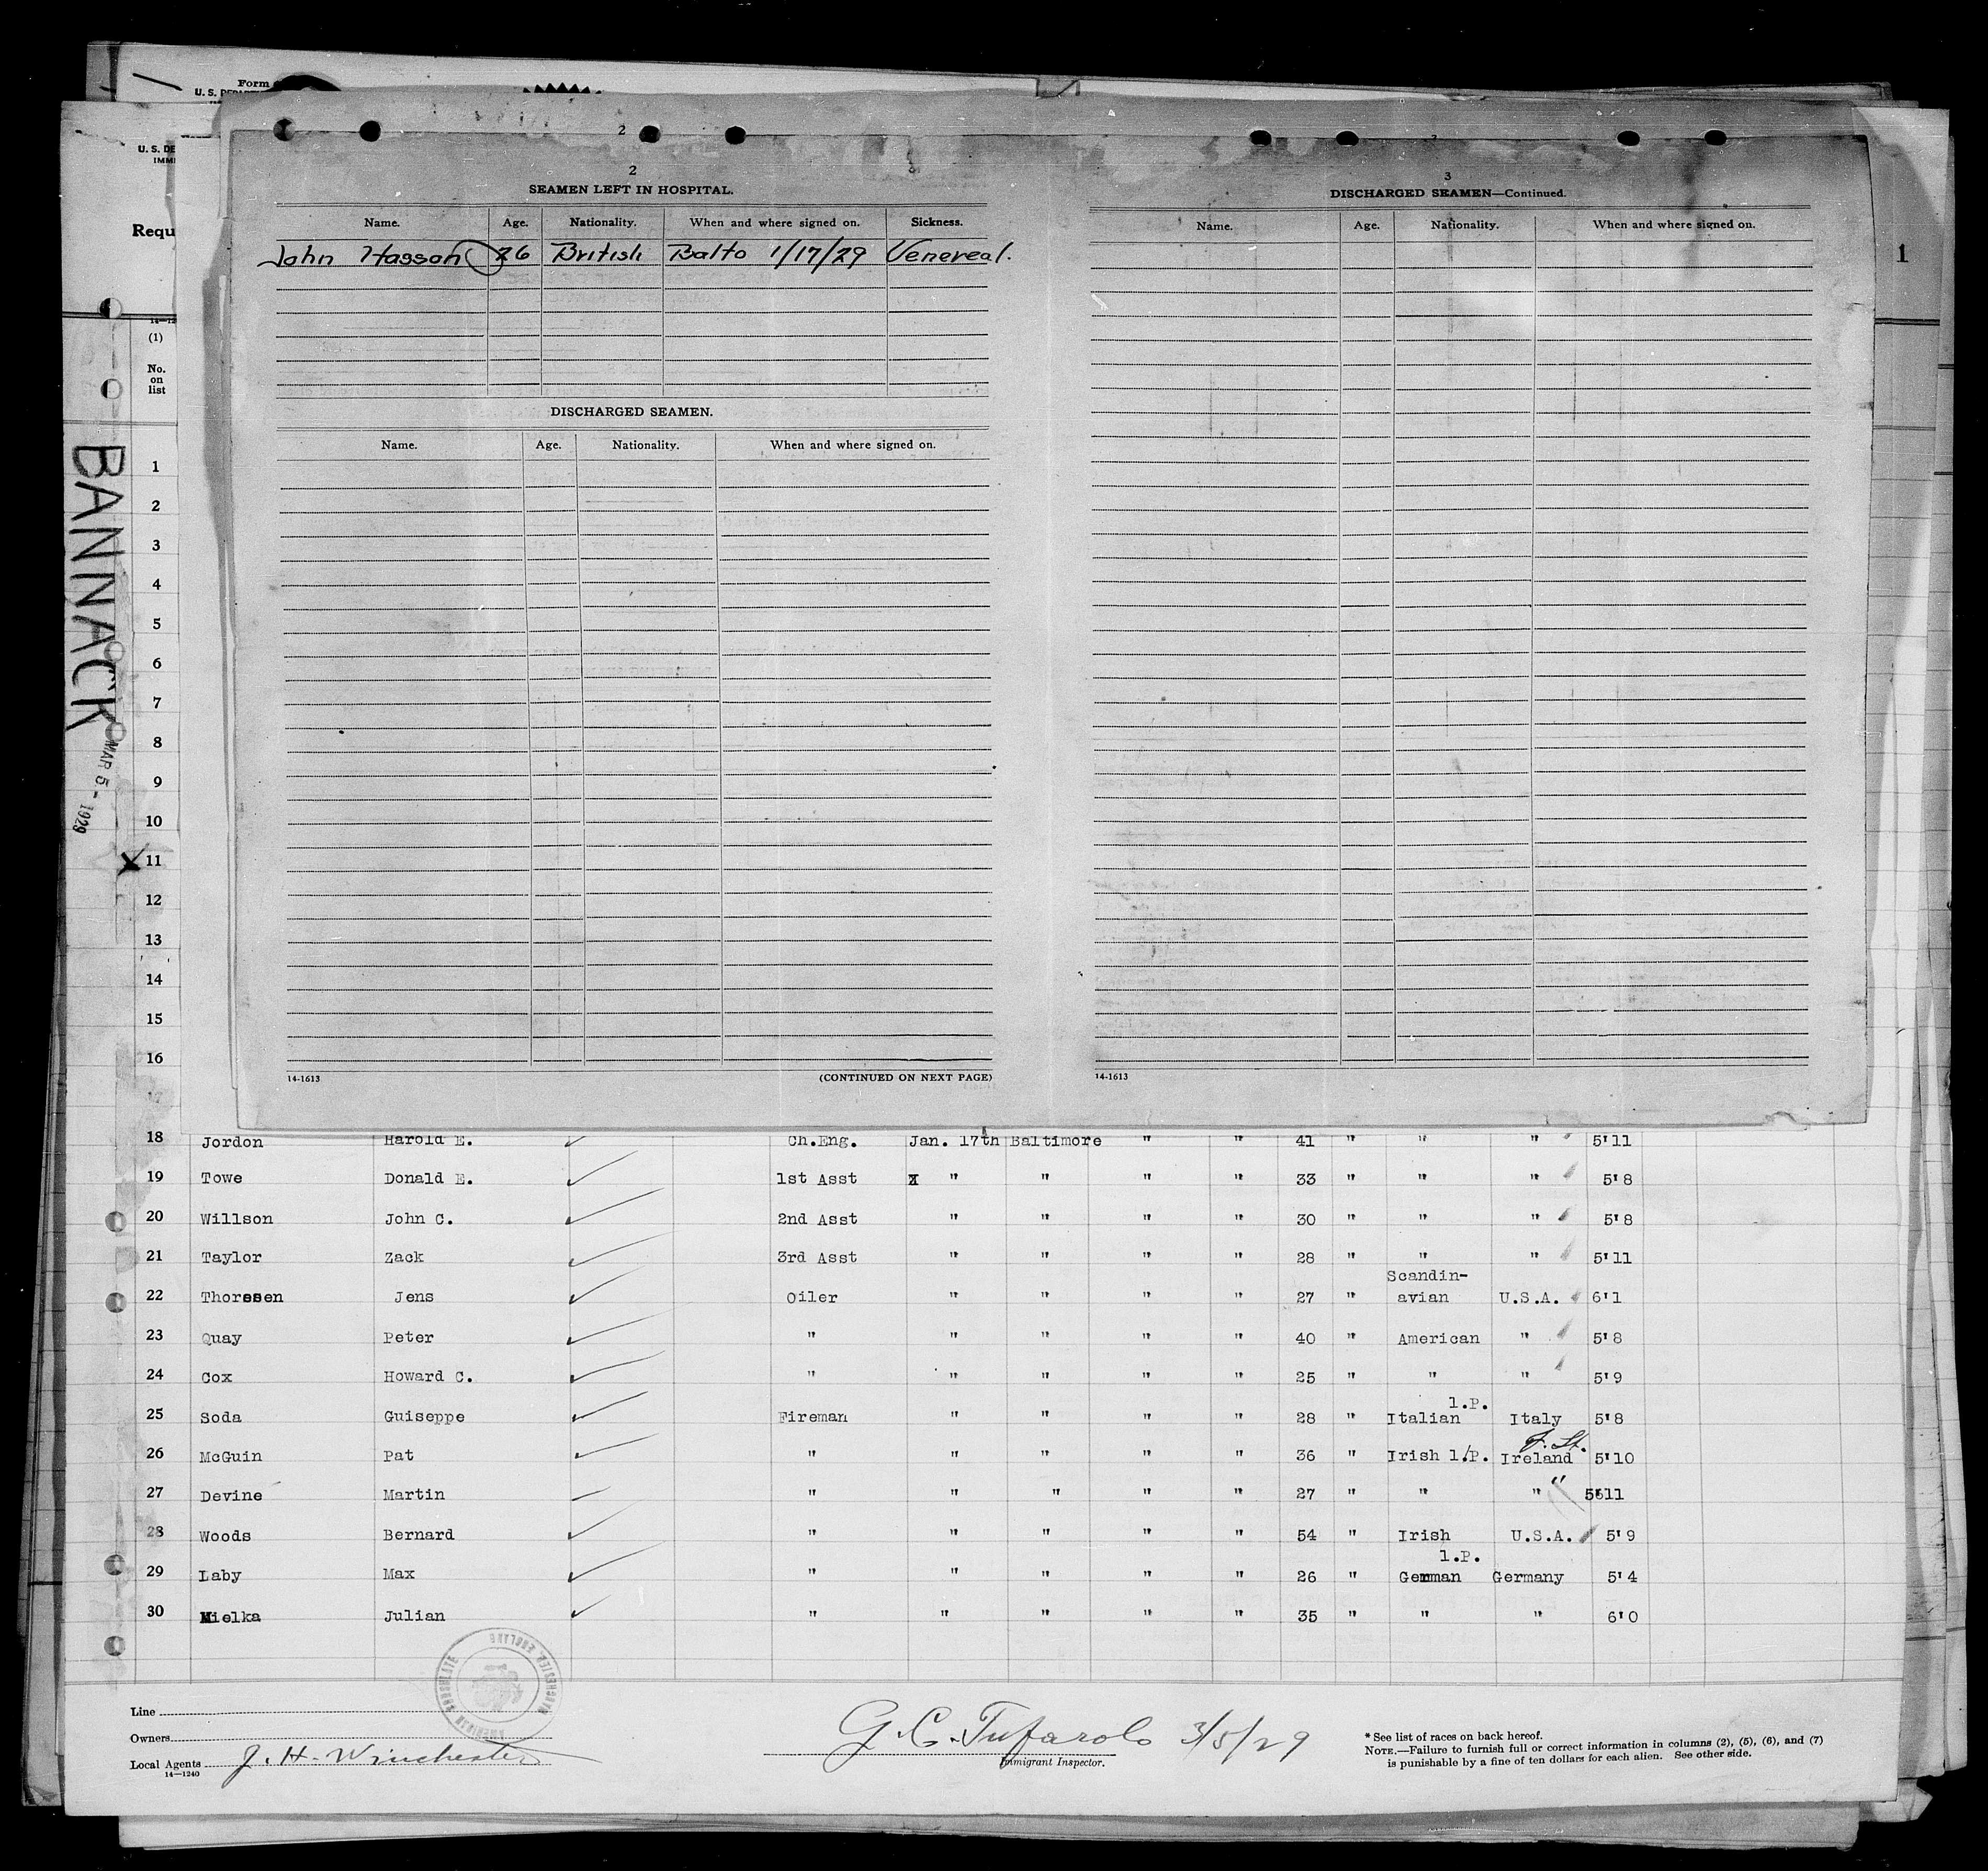 Form
U. S. DEPARTM
U. S. DE
IMMI
Requ
1
14—12
(1)
No.
on
list
BANNACK
MAR 5 - 1929
2
3
2
SEAMEN LEFT IN HOSPITAL.
Name. Age. Nationality. When and where signed on. Sickness.
John Hasson 26 British Balto 1/17/29 Venereal.
DISCHARGED SEAMEN.
Name. Age. Nationality. When and where signed on.
14-1613 (CONTINUED ON NEXT PAGE)
3
DISCHARGED SEAMEN—Continued.
Name. Age. Nationality. When and where signed on.
14-1613
1
2
3
4
5
6
7
8
9
10
X 11
12
13
14
15
16
17
18 Jordon Harold E. Ch.Eng. Jan. 17th Baltimore " " 41 " " " 5'11
19 Towe Donald E. 1st Asst " " " " 33 " " " 5'8
20 Willson John C. 2nd Asst " " " " 30 " " " 5'8
21 Taylor Zack 3rd Asst " " " " 28 " " " 5'11
Scandin-
22 Thoresen Jens Oiler " " " " 27 " avian U.S.A. 6'1
23 Quay Peter " " " " " 40 " American " 5'8
24 Cox Howard C. " " " " " 25 " " " 5'9
1.P.
25 Soda Guiseppe Fireman " " " " 28 " Italian Italy 5'8
26 McGuin Pat " " " " " 36 " Irish 1.P. Ireland 5'10
27 Devine Martin " " " " " 27 " " " 5'11
28 Woods Bernard " " " " " 54 " Irish U.S.A. 5'9
1.P.
29 Laby Max " " " " " 26 " German Germany 5'4
30 Mielka Julian " " " " " 35 " " " 6'0
AMERICAN CONSULATE
MANCHESTER, ENGLAND
Line
Owners
Local Agents J. H. Winchester
14—1240
G. C. Tufarolo 3/5/29
Immigrant Inspector.
* See list of races on back hereof.
NOTE.—Failure to furnish full or correct information in columns (2), (5), (6), and (7)
is punishable by a fine of ten dollars for each alien. See other side.